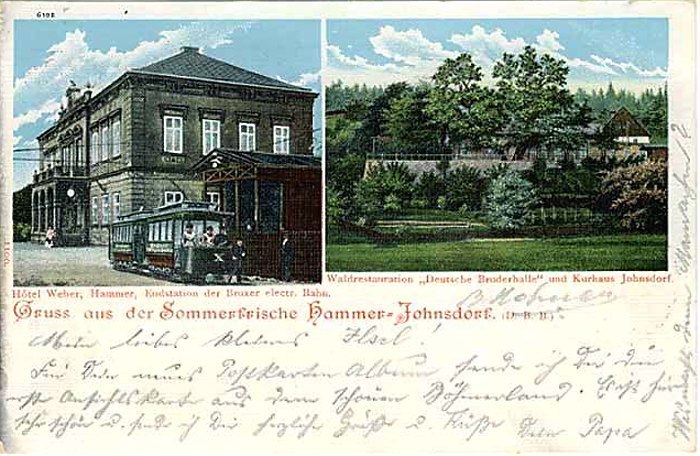 6192
Hôtel Weber, Hammer, Endstation der Bruxer electr. Bahn.
Waldrestauration „Deutsche Bruderhalle" und Kurhaus Johnsdorf.
Gruss aus der Sommerfrische Hammer-Johnsdorf. (D. B. B.)
Mein liebes kleines Ilsel!
Für Dein neues Postkarten Album sende ich Dir die
erste Ansichtskarte aus dem schönen Böhmerland. Es ist hier
sehr schön u. sende ich Dir herzliche Grüße u. Küße Dein Papa